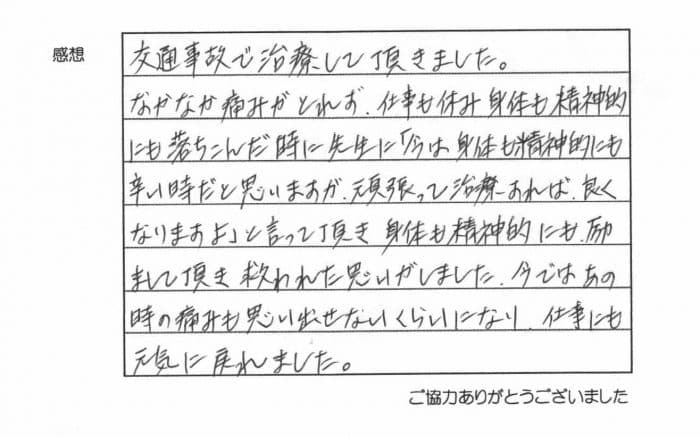 感想
交通事故で治療して頂きました。
なかなか痛みがとれず、仕事も休み身体も精神的
にも落ちこんだ時に先生に「今は身体も精神的にも
辛い時だと思いますが、頑張って治療すれば、良く
なりますよ」と言って頂き身体も精神的にも、励
まして頂き救われた思いがしました。今ではあの
時の痛みも思い出せないくらいになり、仕事にも
元気に戻れました。
ご協力ありがとうございました